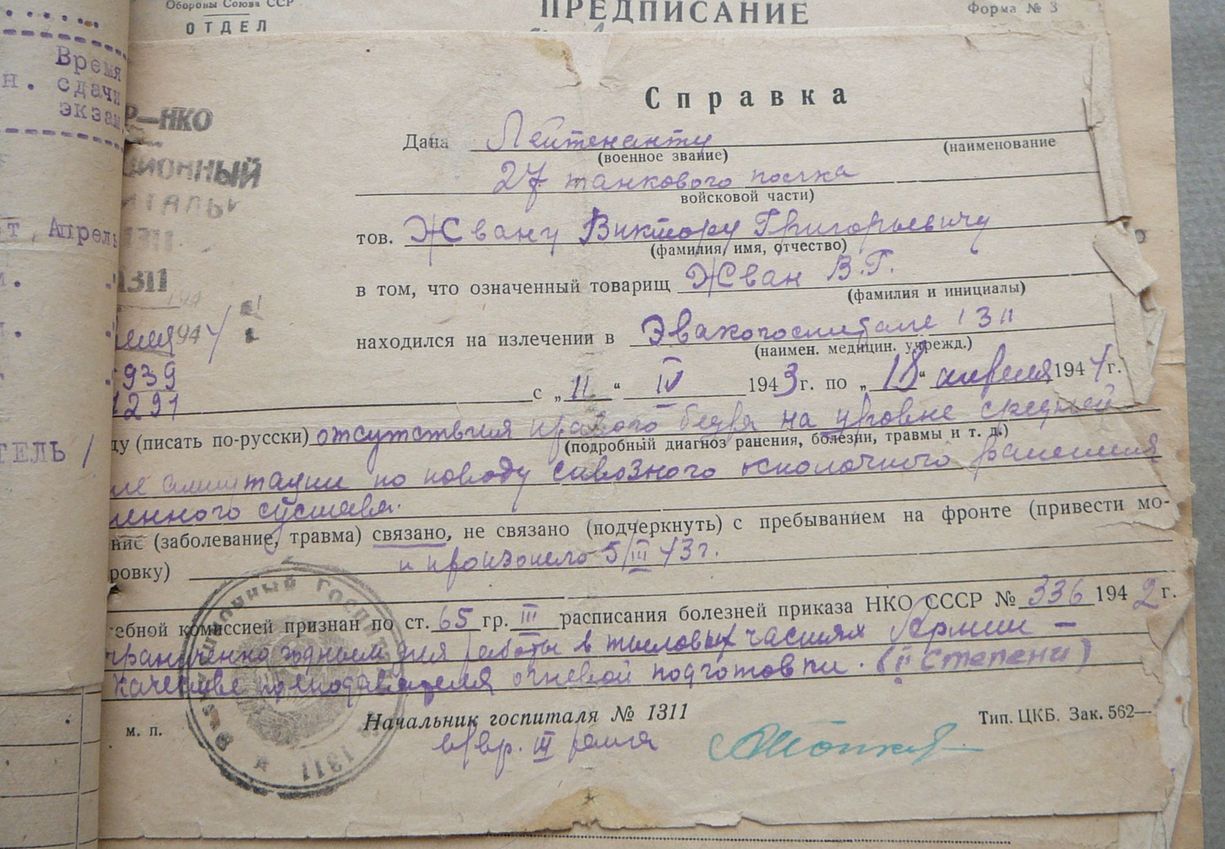 Обороны Союза ССР
ОТДЕЛ
ПРЕДПИСАНИЕ
Форма № 3
Время
н. сдачи
экзам
т Апрель
ТЕЛЬ /
Р—НКО
ЦИОННЫЙ
ИТАЛЬ
1311
1311
194
апреля 1944
939
1291
Справка
Дана Лейтенанту
(военное звание) (наименование
27 танкового полка
войсковой части)
тов. Жвану Виктору Григорьевичу
(фамилия, имя, отчество)
в том, что означенный товарищ Жван В.Г.
(фамилия и инициалы)
находился на излечении в Эвакогоспитале 1311
(наимен. медицин. учрежд.)
с „11“ IV 1943г. по „18“ апреля 1944г.
ду (писать по-русски) отсутствия правого бедра на уровне средней
(подробный диагноз ранения, болезни, травмы и т. д.)
ампутации по поводу сквозного осколочного ранения
ленного сустава.
ние (заболевание, травма) связано, не связано (подчеркнуть) с пребыванием на фронте (привести мо-
ровку) и произошло 5/III 43г.
ебной комиссией признан по ст. 65 гр. III расписания болезней приказа НКО СССР № 336 1942г.
граниченно годным для работы в тыловых частях Армии —
качестве преподавателя огневой подготовки. (II степени)
м. п.
Начальник госпиталя № 1311
Тип. ЦКБ. Зак. 562—
в/вр. III ранга
ГОСПИТ
1311